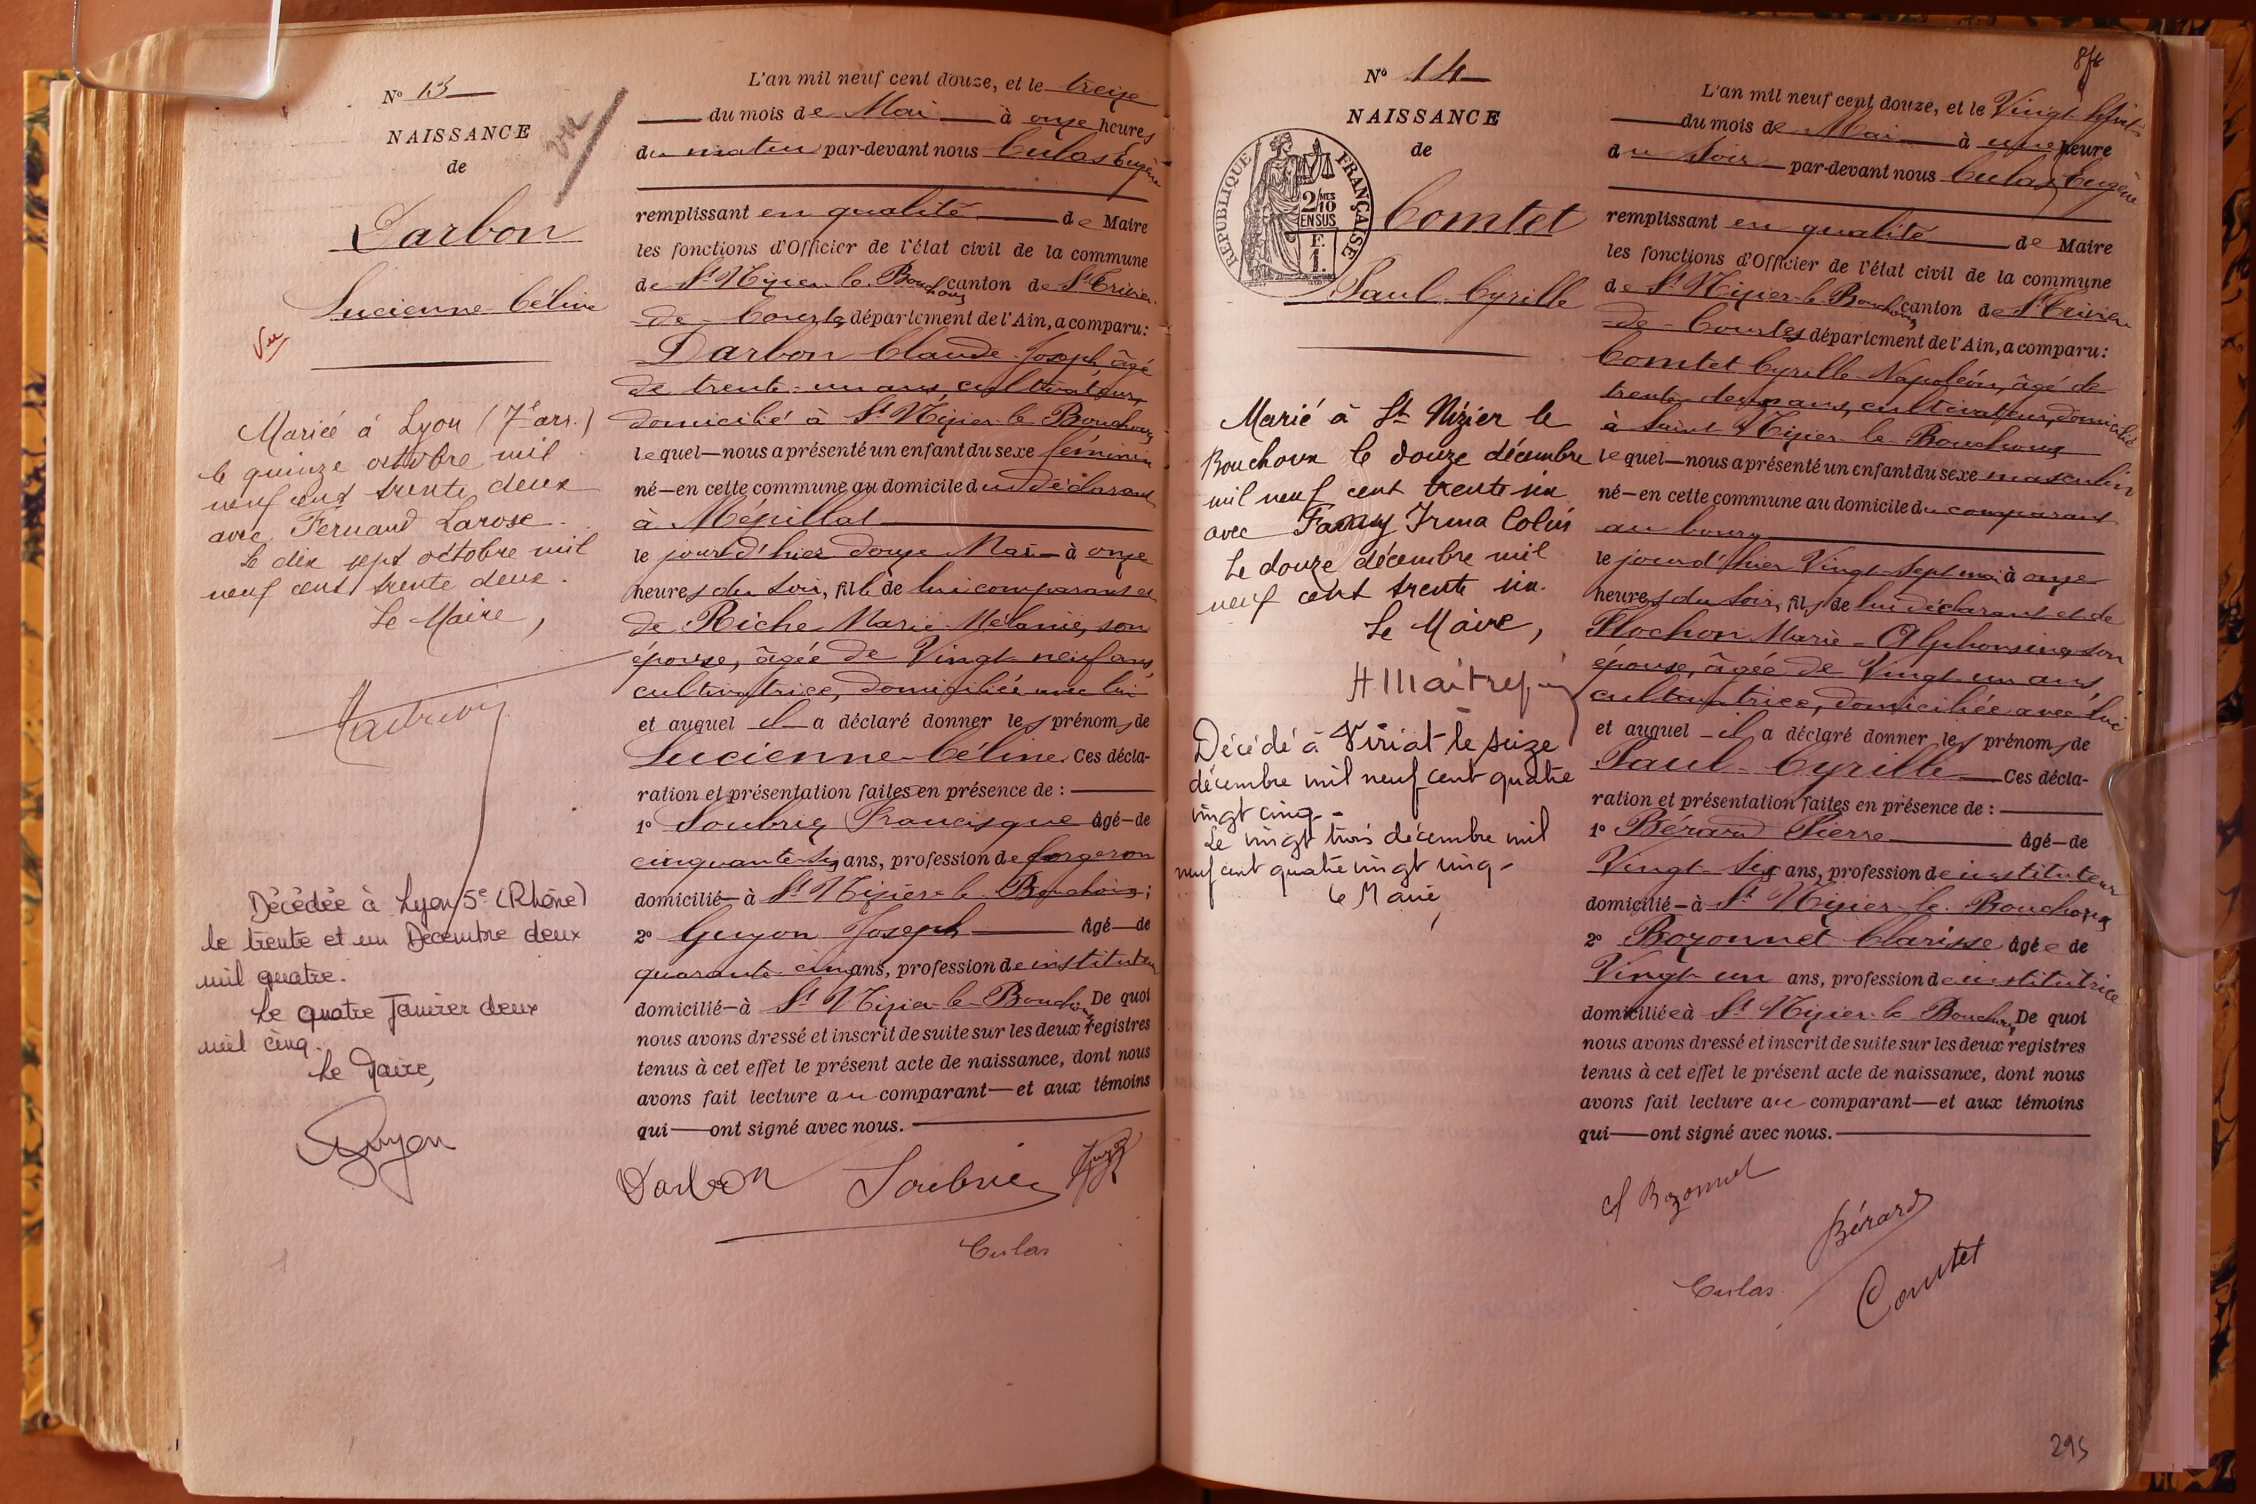 N° 13
NAISSANCE
de
Darbon
Lucienne Céline
Vu
vu
Mariée à Lyon (7e arr.)
le quinze octobre mil
neuf cent trente deux
avec Fernand Larose.
Le dix sept octobre mil
neuf cent trente deux.
Le Maire,
Décédée à Lyon 5e (Rhône)
le trente et un Décembre deux
mil quatre.
Le quatre Janvier deux
mil cinq.
Le Maire,
Guyon
L'an mil neuf cent douze, et le treize
du mois de Mai à onze heures
du matin par-devant nous Culas Eugène
remplissant en qualité de Maire
les fonctions d'Officier de l'état civil de la commune
de St Nizier le Bouchoux canton de St Trivier
de Courtes département de l'Ain, a comparu :
Darbon Claude Joseph, âgé
de trente-un ans, cultivateur,
domicilié à St Nizier le Bouchoux
lequel nous a présenté un enfant du sexe féminin
né en cette commune au domicile du déclarant
à Mépillat
le jour d'hier douze Mai à onze
heures du soir, fille de lui comparant et
de Riche Marie Mélanie, son
épouse, âgée de Vingt neuf ans
cultivatrice, domiciliée avec lui
et auquel il a déclaré donner les prénoms de
Lucienne-Céline. Ces décla-
ration et présentation faites en présence de :
1° Soubrié Francisque âgé de
cinquante six ans, profession de forgeron
domicilié à St Nizier le Bouchoux ;
2° Guyon Joseph âgé de
quarante cinq ans, profession de instituteur
domicilié à St Nizier le Bouchoux De quoi
nous avons dressé et inscrit de suite sur les deux registres
tenus à cet effet le présent acte de naissance, dont nous
avons fait lecture au comparant et aux témoins
qui ont signé avec nous.
Darbon Soubrié Guyon
Culas
N° 14
NAISSANCE
de
RÉPUBLIQUE FRANÇAISE
2/10 MES
EN SUS
F.
1.
Comtet
Paul Cyrille
Marié à St Nizier le
Bouchoux le douze décembre
mil neuf cent trente six
avec Fanny Irma Colin
Le douze décembre mil
neuf cent trente six.
Le Maire,
Décédé à Viriat le seize
décembre mil neuf cent quatre
vingt cinq.
Le vingt trois décembre mil
neuf cent quatre vingt cinq.
Le Maire,
L'an mil neuf cent douze, et le Vingt huit
du mois de Mai à une heure
du Soir par-devant nous Culas Eugène
remplissant en qualité de Maire
les fonctions d'Officier de l'état civil de la commune
de St Nizier-le-Bouchoux canton de St Trivier
de Courtes département de l'Ain, a comparu :
Comtet Cyrille Napoléon, âgé de
trente-deux ans, cultivateur, domicilié
à Saint Nizier le Bouchoux
lequel nous a présenté un enfant du sexe masculin
né en cette commune au domicile du comparant
au bourg
le jour d'hier Vingt-Sept mai à onze
heures du soir, fils de lui déclarant et de
Flochon Marie-Alphonsine, son
épouse, âgée de Vingt un ans,
cultivatrice, domiciliée avec lui
et auquel il a déclaré donner les prénoms de
Paul-Cyrille Ces décla-
ration et présentation faites en présence de :
1° Bérard Pierre âgé de
Vingt Six ans, profession de instituteur
domicilié à St Nizier le Bouchoux
2° Bozonnet Clarisse âgée de
Vingt un ans, profession de institutrice
domiciliée à St Nizier le Bouchoux De quoi
nous avons dressé et inscrit de suite sur les deux registres
tenus à cet effet le présent acte de naissance, dont nous
avons fait lecture au comparant et aux témoins
qui ont signé avec nous.
C Bozonnet
Bérard
Culas
Comtet
295